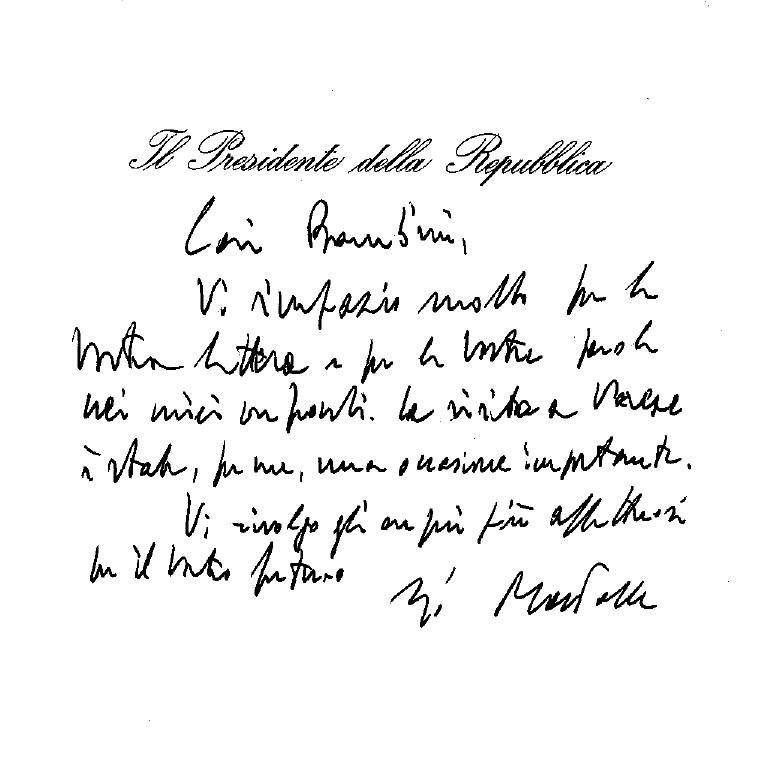 Il Presidente della Repubblica
Cari Bambini,
Vi ringrazio molto per la
Vostra lettera e per le Vostre parole
nei miei confronti. La visita a Varese
è stata, per me, una occasione importante.
Vi rivolgo gli auguri più affettuosi
per il Vostro futuro
Mattarella